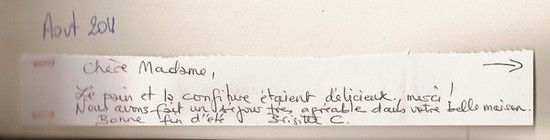 Août 2011
Chère Madame,
Le pain et la confiture étaient délicieux, merci !
Nous avons fait un séjour très agréable dans votre belle maison.
Bonne fin d'été Brigitte C.